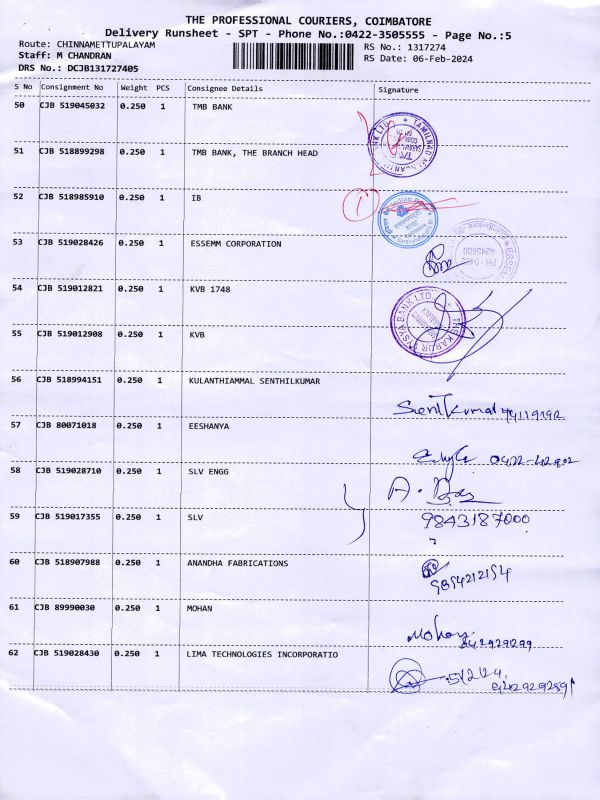 THE PROFESSIONAL COURIERS, COIMBATORE
Delivery Runsheet - SPT - Phone No.:0422-3505555 - Page No.:5
Route: CHINNAMETTUPALAYAM
RS No.: 1317274
Staff: M CHANDRAN
RS Date: 06-Feb-2024
DRS No.: DCJB131727405
S No Consignment No Weight PCS Consignee Details Signature
50 CJB 519045032 0.250 1 TMB BANK
51 CJB 518899298 0.250 1 TMB BANK, THE BRANCH HEAD
52 CJB 518985910 0.250 1 IB
53 CJB 519028426 0.250 1 ESSEMM CORPORATION
54 CJB 519012821 0.250 1 KVB 1748
55 CJB 519012908 0.250 1 KVB
THE KARUR VYSYA BANK LTD.
56 CJB 518994151 0.250 1 KULANTHIAMMAL SENTHILKUMAR
57 CJB 80071018 0.250 1 EESHANYA
58 CJB 519028710 0.250 1 SLV ENGG
59 CJB 519017355 0.250 1 SLV
9843187000
60 CJB 518907988 0.250 1 ANANDHA FABRICATIONS
61 CJB 89990030 0.250 1 MOHAN
Mohan
62 CJB 519028430 0.250 1 LIMA TECHNOLOGIES INCORPORATIO